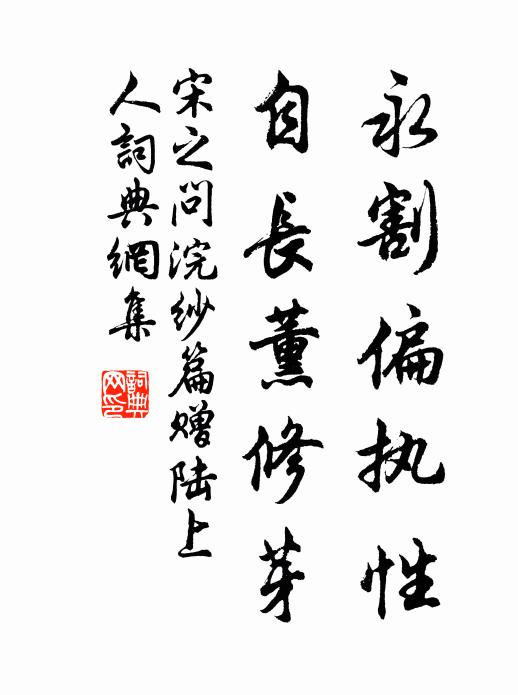 永割偏执性
自長薰修芽
宋之问浣纱篇赠陆上
人詞典網集
詞典
网印